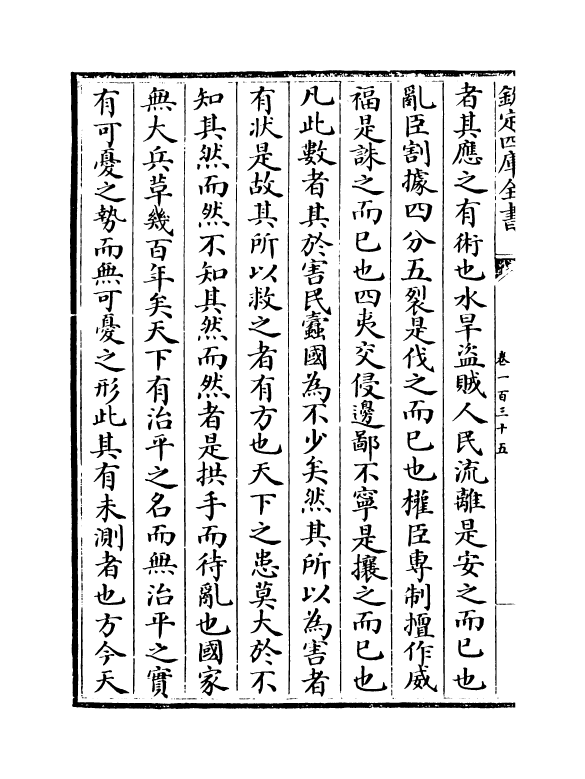 欽定四庫全書
卷一百三十五
者其應之有術也水旱盗賊人民流離是安之而已也
亂臣割據四分五裂是伐之而已也權臣専制擅作威
福是誅之而已也四夷交侵邊鄙不寧是攘之而已也
凡此數者其於害民蠧國為不少矣然其所以為害者
有状是故其所以救之者有方也天下之患莫大於不
知其然而然不知其然而然者是拱手而待亂也國家
無大兵草幾百年矣天下有治平之名而無治平之實
有可憂之勢而無可憂之形此其有未測者也方今天